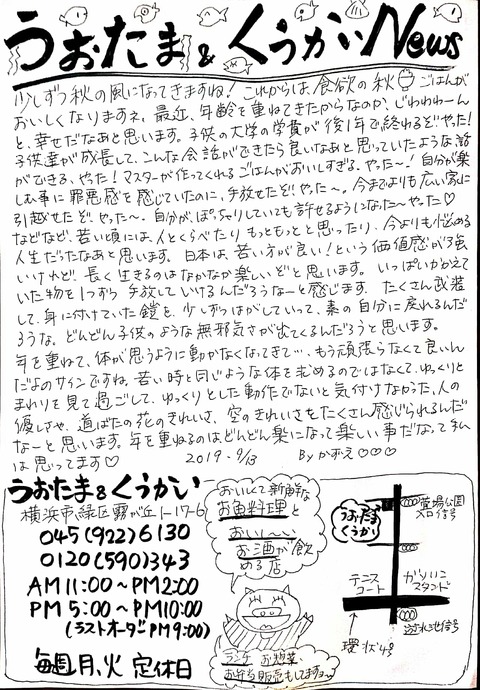 うおたま&くうかいNews
少しずつ秋の風になってきますね! これからは、食欲の秋 ごはんが
おいしくなりますネ。最近、年齢を重ねてきたからなのか、じわわわーん
と、幸せだなあと思います。子供の大学の学費が後1年で終わるぞやった!
子供達が成長して、こんな会話ができたら良いなあと思っていたような話
ができる、やった! マスターが作ってくれるごはんがおいしすぎる、やった~! 自分が楽
しむ事に罪悪感を感じていたのに、手放せたぞ、やった~。今までよりも広い家に
引越せたぞ、やった~。自分が、ぽっちゃりしていても許せるようになった~やった♡
などなど、若い頃には、人とくらべたりもっともっとと思ったり、今よりも悩める
人生だったなあと思います。日本は、若い方が良い!という価値感が強
いけれど、長く生きるのはなかなか楽しいぞと思います。いっぱいかかえて
いた物を1つずつ手放していけるんだろうなーと感じます。たくさん武装
して、身に付けていた鎧を、少しずつはがしていって、素の自分に戻れるんだ
ろうな。どんどん子供のような無邪気さが出てくるんだろうと思います。
年を重ねて、体が思うように動かなくなってきて…、もう頑張らなくて良いん
だよのサインですね。若い時と同じような体を求めるのではなくて、ゆっくりと
まわりを見て過ごして、ゆっくりとした動作でないと気付けなかった、人の
優しさや、道ばたの花のきれいさ、空のきれいさをたくさん感じられるんだ
なーと思います。年を重ねるのはどんどん楽になって楽しい事だなって私
は思ってます♡ 2019.9/13 Byかずえ♡♡♡
うおたま&くうかい
横浜市緑区霧が丘1-17-6
045(922)6130
0120(590)343
AM11:00~PM2:00
PM5:00~PM10:00
(ラストオーダーPM9:00)
毎週月、火 定休日
おいしくて新鮮な
お魚料理と
おいし~い
お酒が飲
める店
ランチ お惣菜、
お弁当販売もしてますョ~
うおたま
くうかい
霧場公園
入口信号
テニス
コート
ガソリン
スタンド
遊水池信号
環状4号